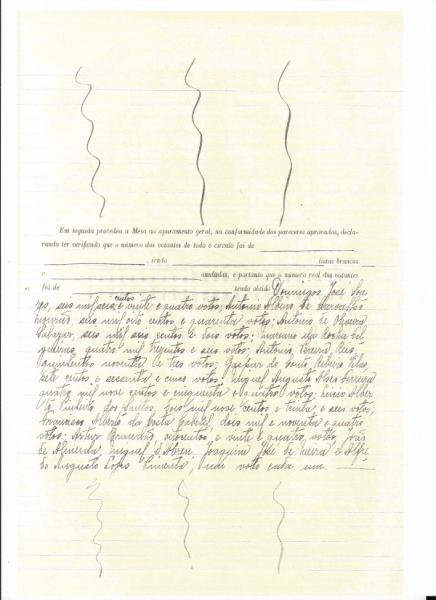 Em seguida procedeu a Mesa ao apuramento geral, na conformidade dos pareceres aprovados, decla-
rando ter verificado que o número dos votantes de todo o circulo foi de
, sendo listas brancas
e annuladas, e portanto que o número real dos votantes
foi de tendo obtido Domingos José
seis mil centos e vinte e quatro votos; Antonio de Carvalho
seis mil oito centos e quarenta votos; Antonio de Oliveira
seis mil seis centos e dois votos; da Rocha
quatro mil e seis votos; Antonio Pereira Reis
quinhentos noventa e tres votos; Gaspar do Couto Ribeiro Villas,
sete centos e sessenta e cinco votos; Miguel Augusto Alves Ferreira
quatro mil nove centos e cincoenta e quatro votos;
dos Santos, dois mil nove centos e trinta e seis votos;
Francisco Alberto da Costa Cabral, dois mil e noventa e quatro
votos; Artur Brandão, oitocentos e vinte e quatro votos, João
de Almeida, Miguel d'Abreu, Joaquim José de e Alfre-
do Augusto Lopes Pimenta, um voto cada um.